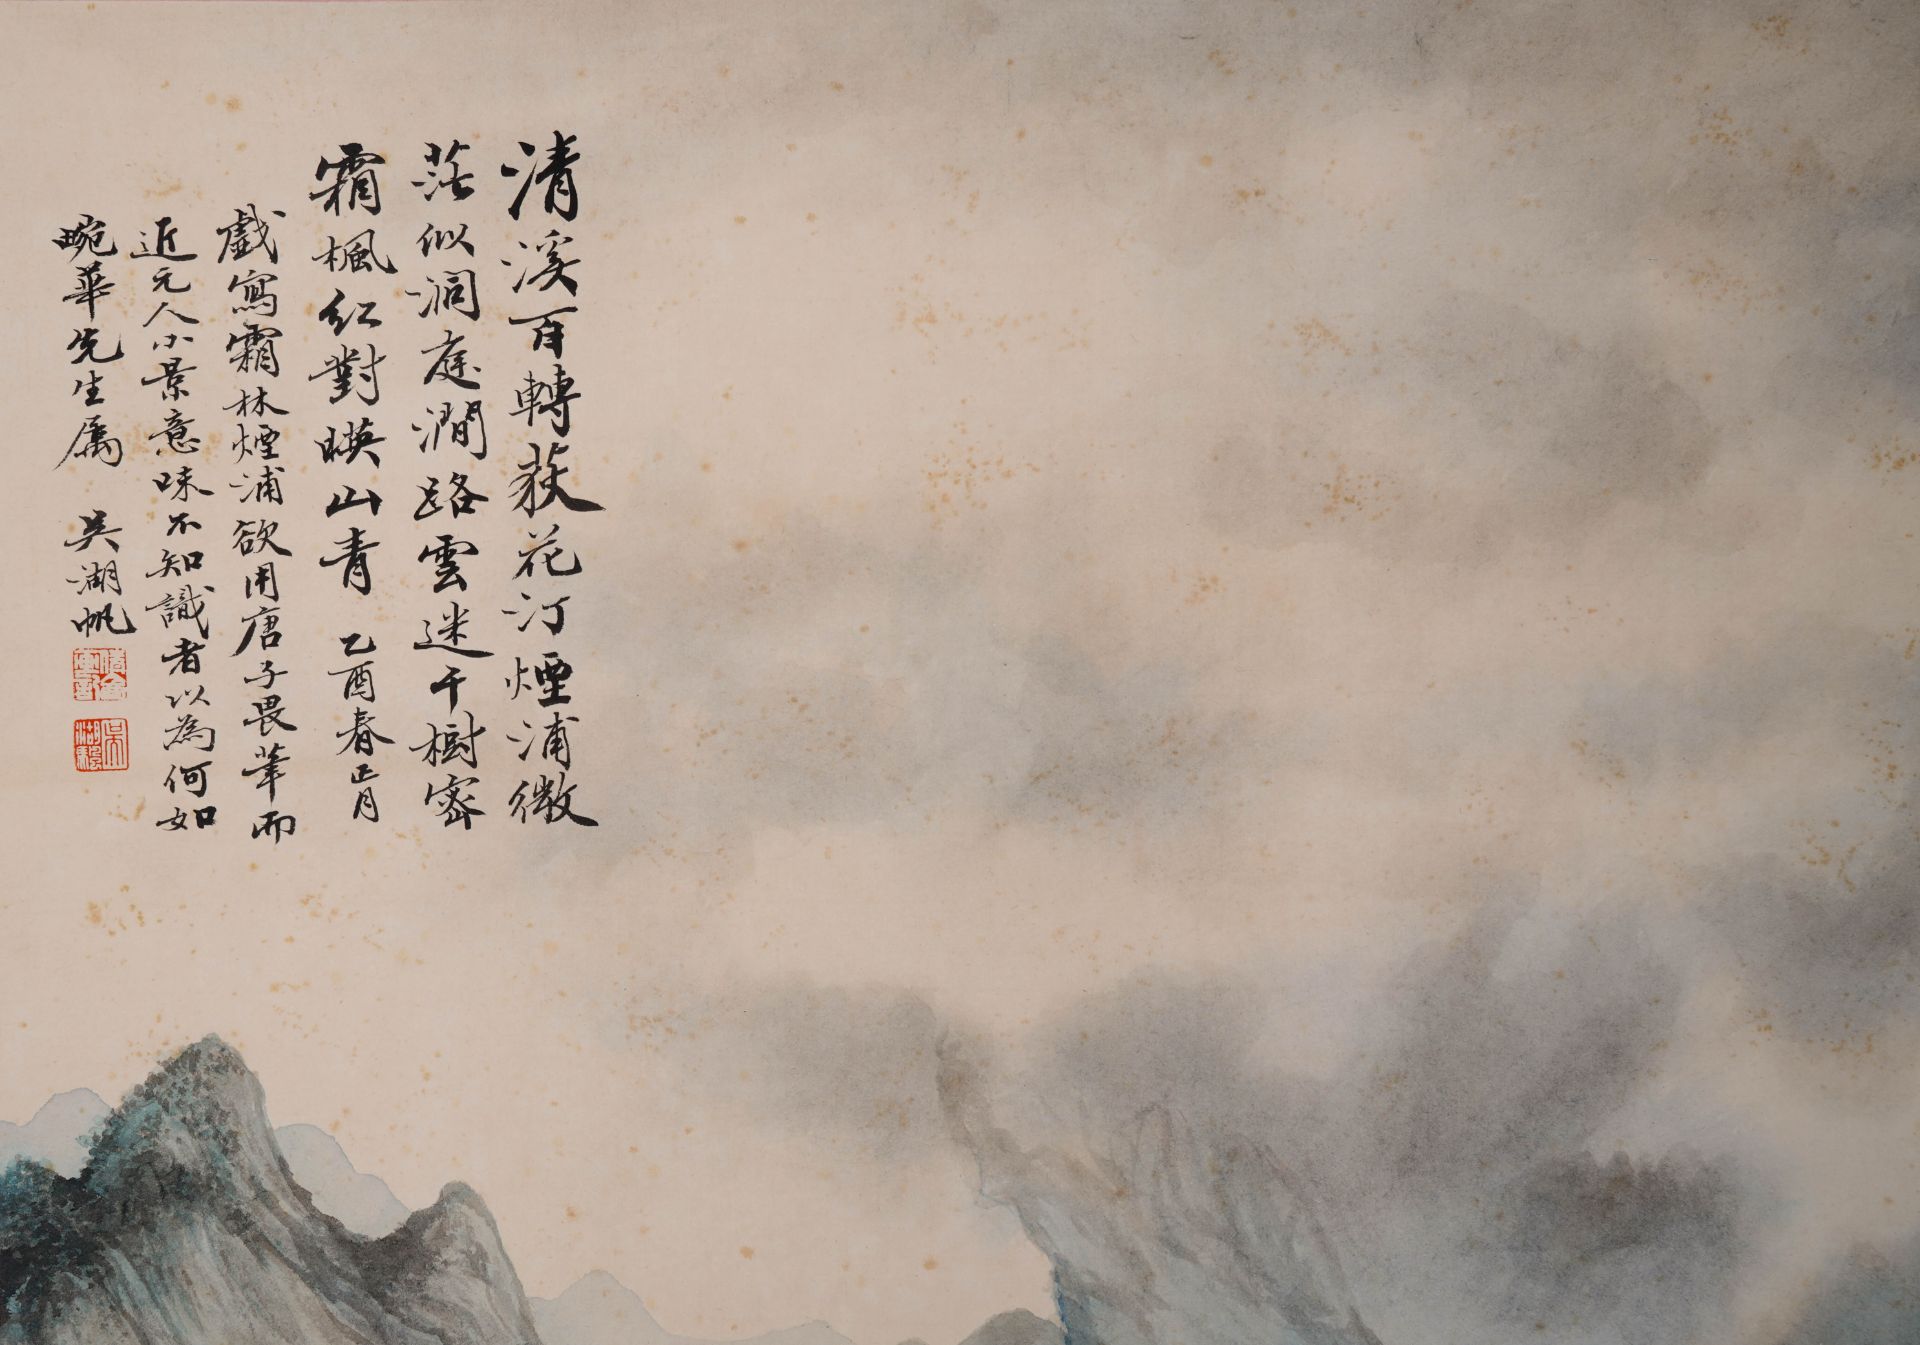 清溪百轉荻花汀煙浦微
茫似洞庭澗路雲迷千樹密
霜楓紅對暎山青 乙酉春正月
戲寫霜林煙浦欲用唐子畏筆而
近元人小景意味不知識者以為何如
畹華先生属 吳湖帆